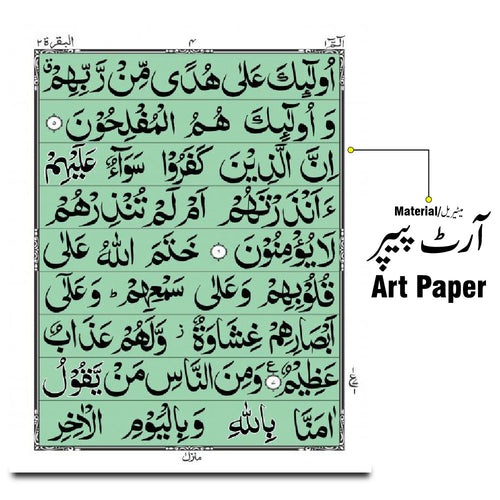 الٓمّٓ ١
٤
البقرة ٢
اُولٰٓئِكَ عَلٰى هُدًى مِّنْ رَّبِّهِمْ ق
وَ اُولٰٓئِكَ هُمُ الْمُفْلِحُوْنَ ٥
اِنَّ الَّذِيْنَ كَفَرُوْا سَوَآءٌ عَلَيْهِمْ
ءَاَنْذَرْتَهُمْ اَمْ لَمْ تُنْذِرْهُمْ
لَا يُؤْمِنُوْنَ ٦ خَتَمَ اللّٰهُ عَلٰى
قُلُوْبِهِمْ وَعَلٰى سَمْعِهِمْ ط وَعَلٰٓى
اَبْصَارِهِمْ غِشَاوَةٌ ز وَّلَهُمْ عَذَابٌ
عَظِيْمٌ ع ٧ وَمِنَ النَّاسِ مَنْ يَّقُوْلُ
اٰمَنَّا بِاللّٰهِ وَبِالْيَوْمِ الْاٰخِرِ
منزل
Material/میٹیریل
آرٹ پیپر
Art Paper